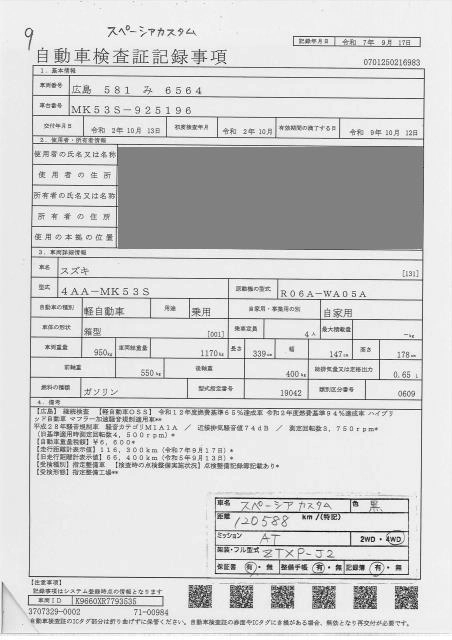 9
スペーシアカスタム
記録年月日 令和 7年 9月 17日
自動車検査証記録事項
0701250216983
1. 基本情報
車両番号 広島 581 み 6564
車台番号 MK53S-925196
交付年月日 令和 2年 10月 13日 初度検査年月 令和 2年 10月 有効期間の満了する日 令和 9年 10月 12日
2. 使用者・所有者情報
使用者の氏名又は名称
使用者の住所
所有者の氏名又は名称
所有者の住所
使用の本拠の位置
3. 車両詳細情報
車名 スズキ [131]
型式 4AA-MK53S 原動機の型式 R06A-WA05A
自動車の種別 軽自動車 用途 乗用 自家用・事業用の別 自家用
車体の形状 箱型 [001] 乗車定員 4人 最大積載量 -kg
車両重量 950kg 車両総重量 1170kg 長さ 339cm 幅 147cm 高さ 178cm
前軸重 550kg 後軸重 400kg 総排気量又は定格出力 0.65L
燃料の種類 ガソリン 型式指定番号 19042 類別区分番号 0609
4. 備考
【広島】 継続検査 【軽自動車OSS】 令和12年度燃費基準65%達成車 令和2年度燃費基準94%達成車 ハイブリ
ッド自動車 マフラー加速騒音規制適用車**
平成28年騒音規制車 騒音カテゴリM1A1A / 近接排気騒音値74dB / 測定回転数3,750rpm*
(旧基準適用時測定回転数4,500rpm)*
【自動車重量税額】¥6,600*
【走行距離計表示値】116,300km(令和7年9月17日)*
【旧走行距離計表示値】66,400km(令和5年9月13日)*
【受検種別】指定整備車 【検査時の点検整備実施状況】点検整備記録簿記載あり*
【受検形態】指定整備工場**
車名 スペーシアカスタム 色 黒
距離 120588 km/(特記)
ミッション AT 2WD・4WD
架装・フル型式 ZTXP-J2
保証書 有・無 整備手帳 有・無 記録簿 有・無
【注意事項】
記録事項はシステム登録時点の情報となります
車両ID K9660XR7793535
3707329-0002 71-00984
自動車検査証のICタグ部分は折り曲げずに保管ください。自動車検査証の券面やICタグにき損がある場合、無効となり再交付が必要です。